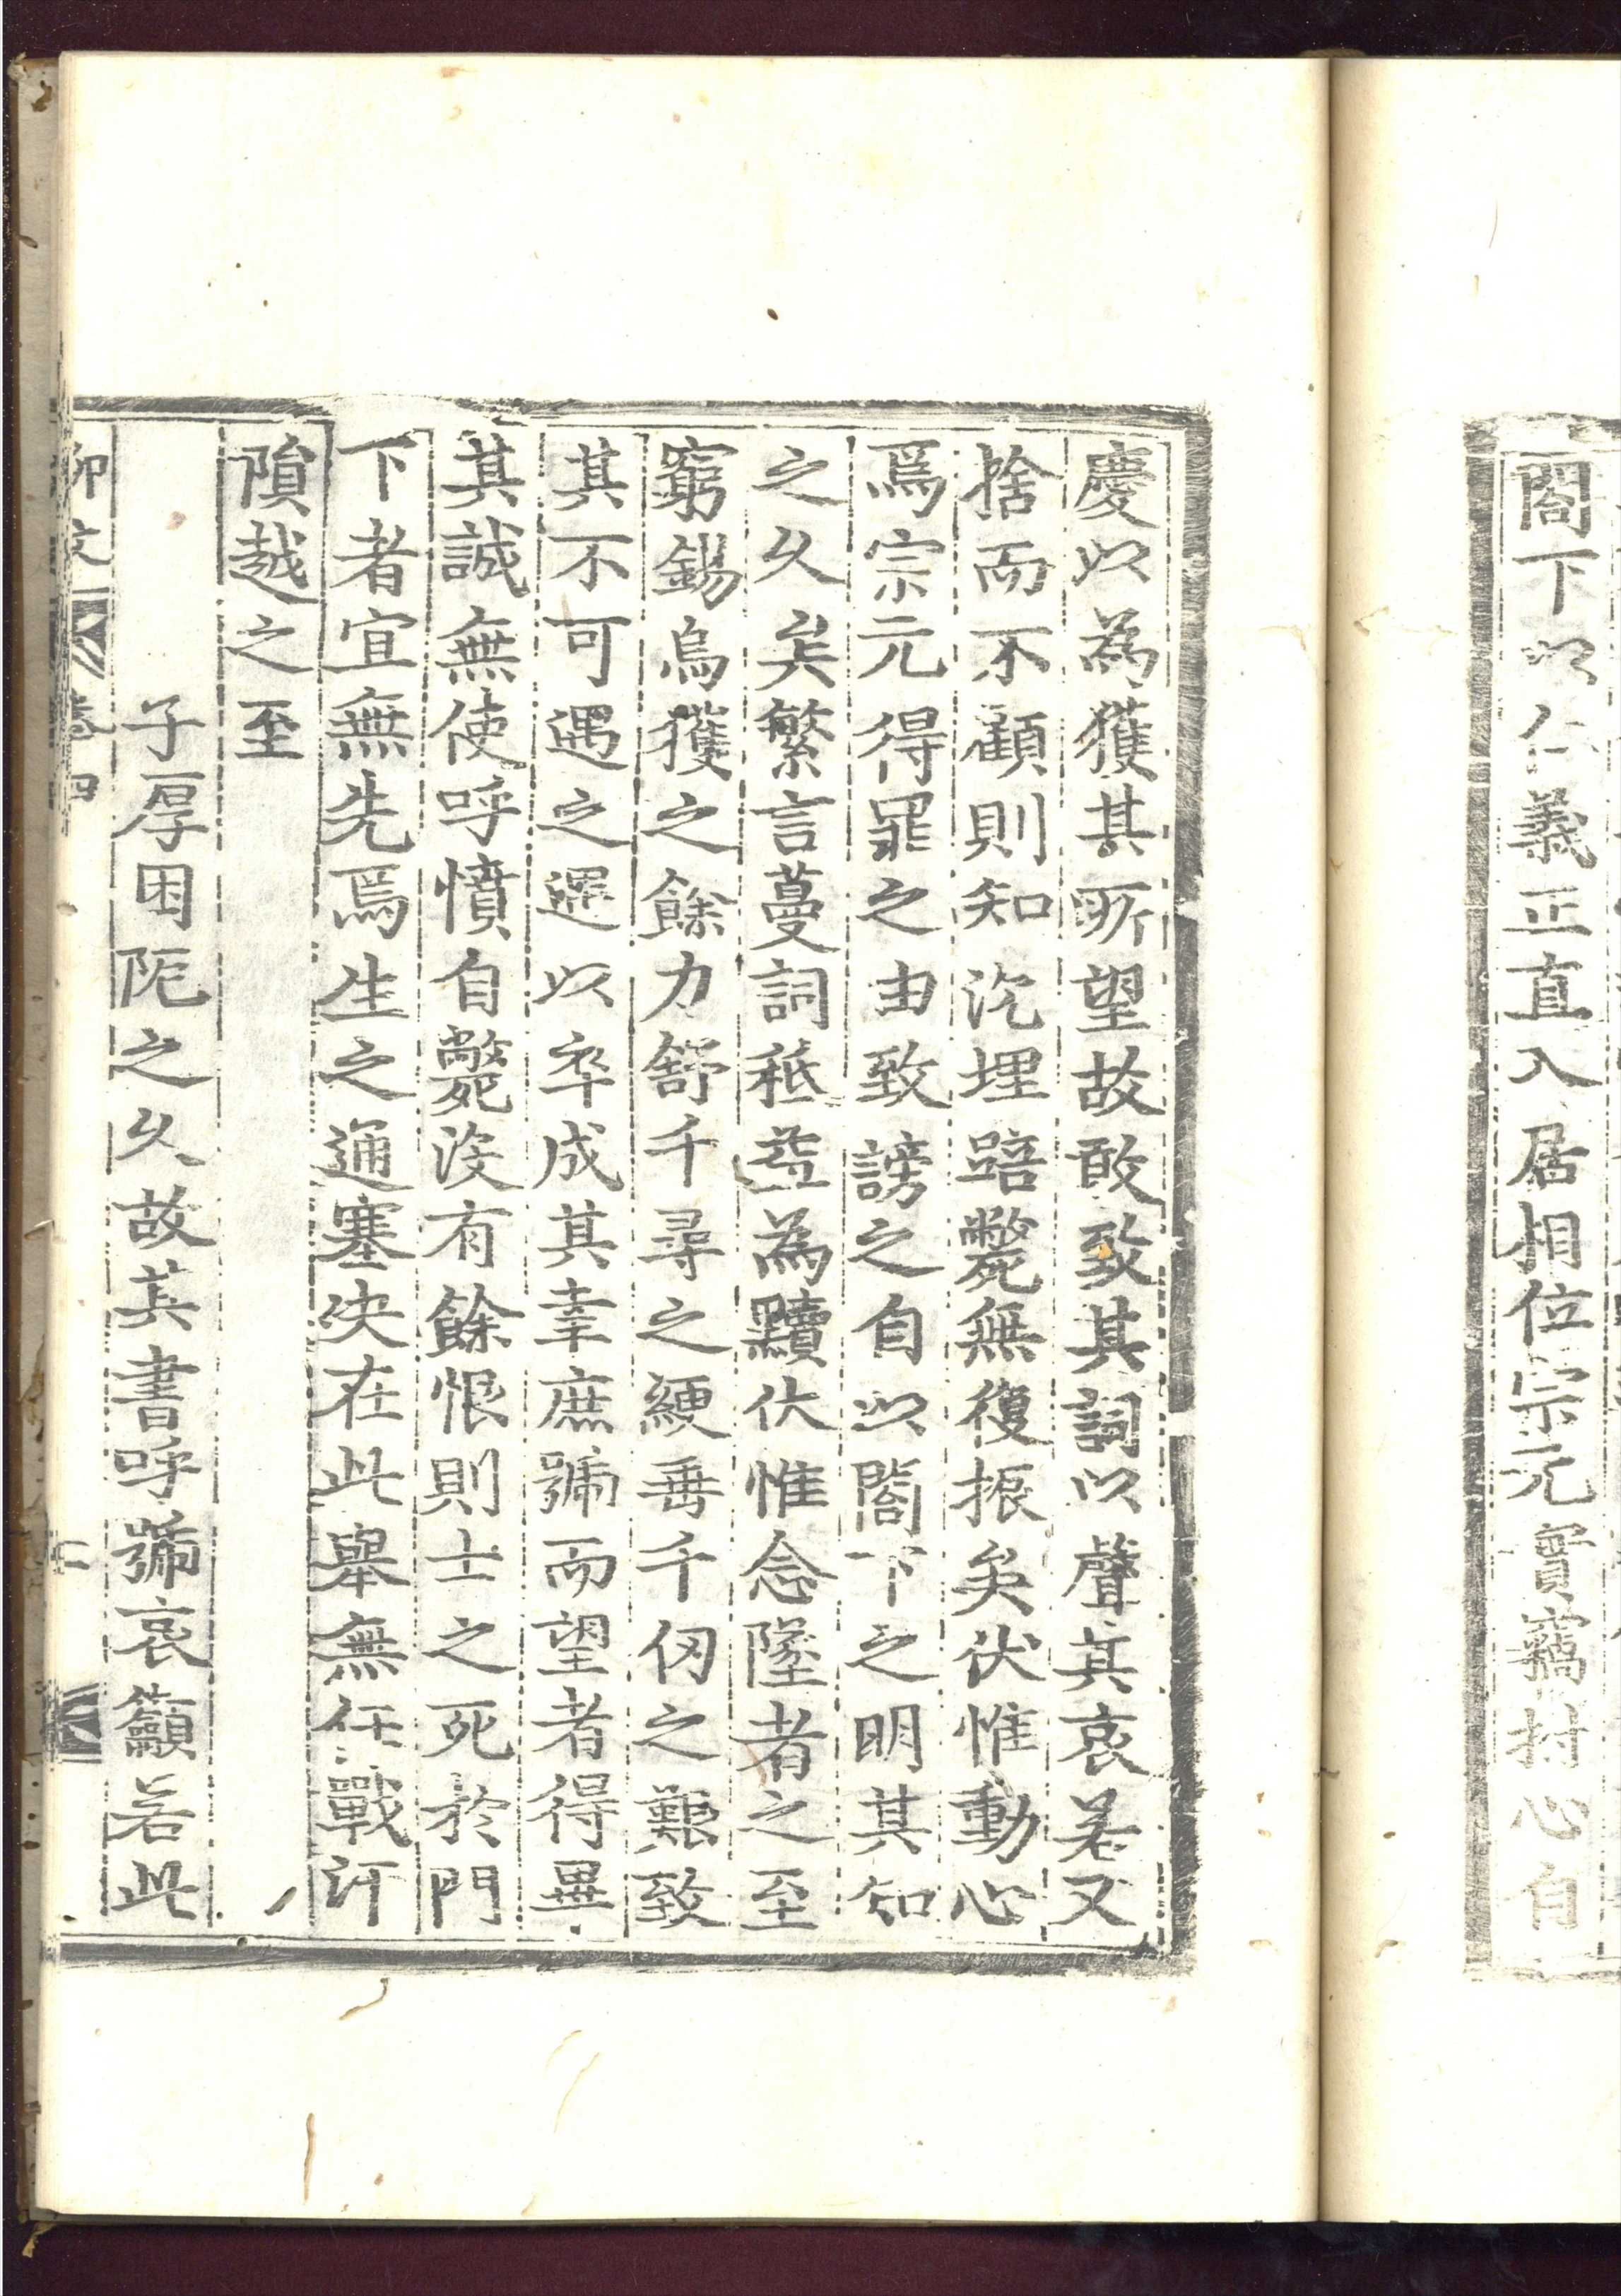 閤下以仁義正直入居相位宗元實竊拊心自
慶以為獲其所望故敢致其詞以聲其哀若又
捨而不顧則知沉埋踣斃無復振矣伏惟動心
焉宗元得罪之由致謗之自以閤下之明其知
之久矣繁言蔓詞秪益為黷伏惟念墜者之至
窮錫烏獲之餘力舒千尋之綆垂千仞之艱致
其不可遇之遇以卒成其幸庶號而望者得畢
其誠無使呼憤自斃沒有餘恨則士之死於門
下者宜無先焉生之通塞決在此舉無任戰汗
隕越之至
子厚困阨之久故其書呼號哀籲若此
柳文 卷四 二